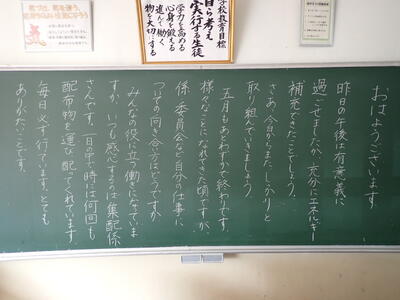 学校教育目標
自ら考え
実行する生徒
学力を高める
心身を鍛える
進んで働く
物を大切にする
おはようございます。
昨日の午後は有意義に
過ごせましたか。充分にエネルギー
補充できたことでしょう。
さあ、今日からまたしっかりと
取り組んでいきましょう。
五月もあとわずかで終わりです。
様々なことになれてきた頃ですが、
係、委員会など自分の仕事に
ついての向き合い方はどうですか。
みんなの役に立つ働きになっていま
すか。いつも感心するのは集配係
さんです。一日の中で時には何回も
配布物を運び、配ってくれています。
毎日必ず行っています。とても
ありがたいことです。